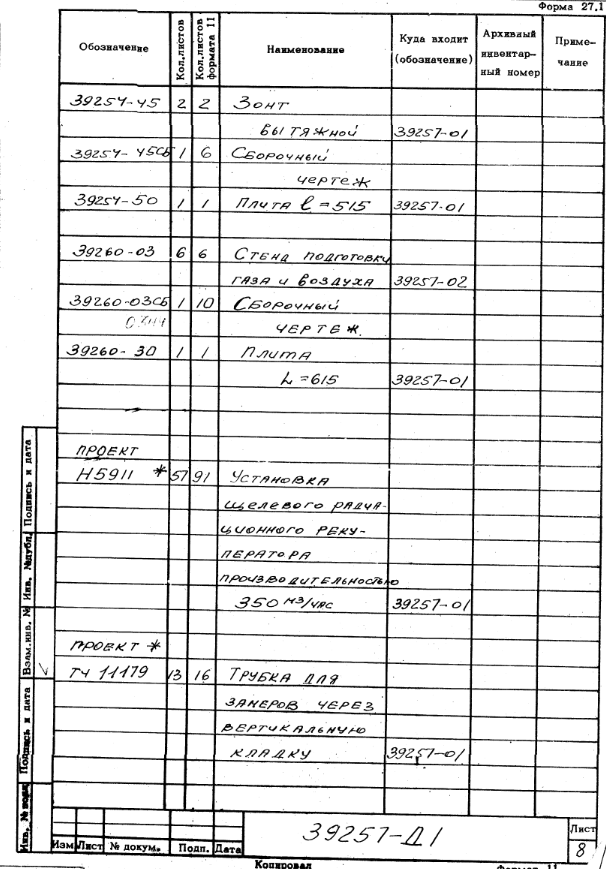 Форма 27.1
Обозначение Кол.листов Кол.листов формата 11 Наименование Куда входит (обозначение) Архивный инвентар-ный номер Приме-чание
39257-45 2 2 Зонт
вытяжной 39257-01
39257-45СБ 1 6 Сборочный
чертеж
39257-50 1 1 Плита ℓ=515 39257-01
39260-03 6 6 Стенд подготовки
газа и воздуха 39257-02
39260-03СБ 1 10 Сборочный
чертеж.
39260-30 1 1 Плита
L=615 39257-01
проект
Н5911 * 57 91 Установка
щелевого радиа-
ционного реку-
ператора
производительностью
350 м3/час 39257-01
проект *
ТЧ 11179 13 16 Трубка для
замеров через
вертикальную
кладку 39257-01
Подпись и дата
Инв. №дубл.
Взам.инв. №
Подпись и дата
Инв. № подл.
39257-Д1
Лист
8
Изм Лист № докум. Подп. Дата
Копировал Формат 11